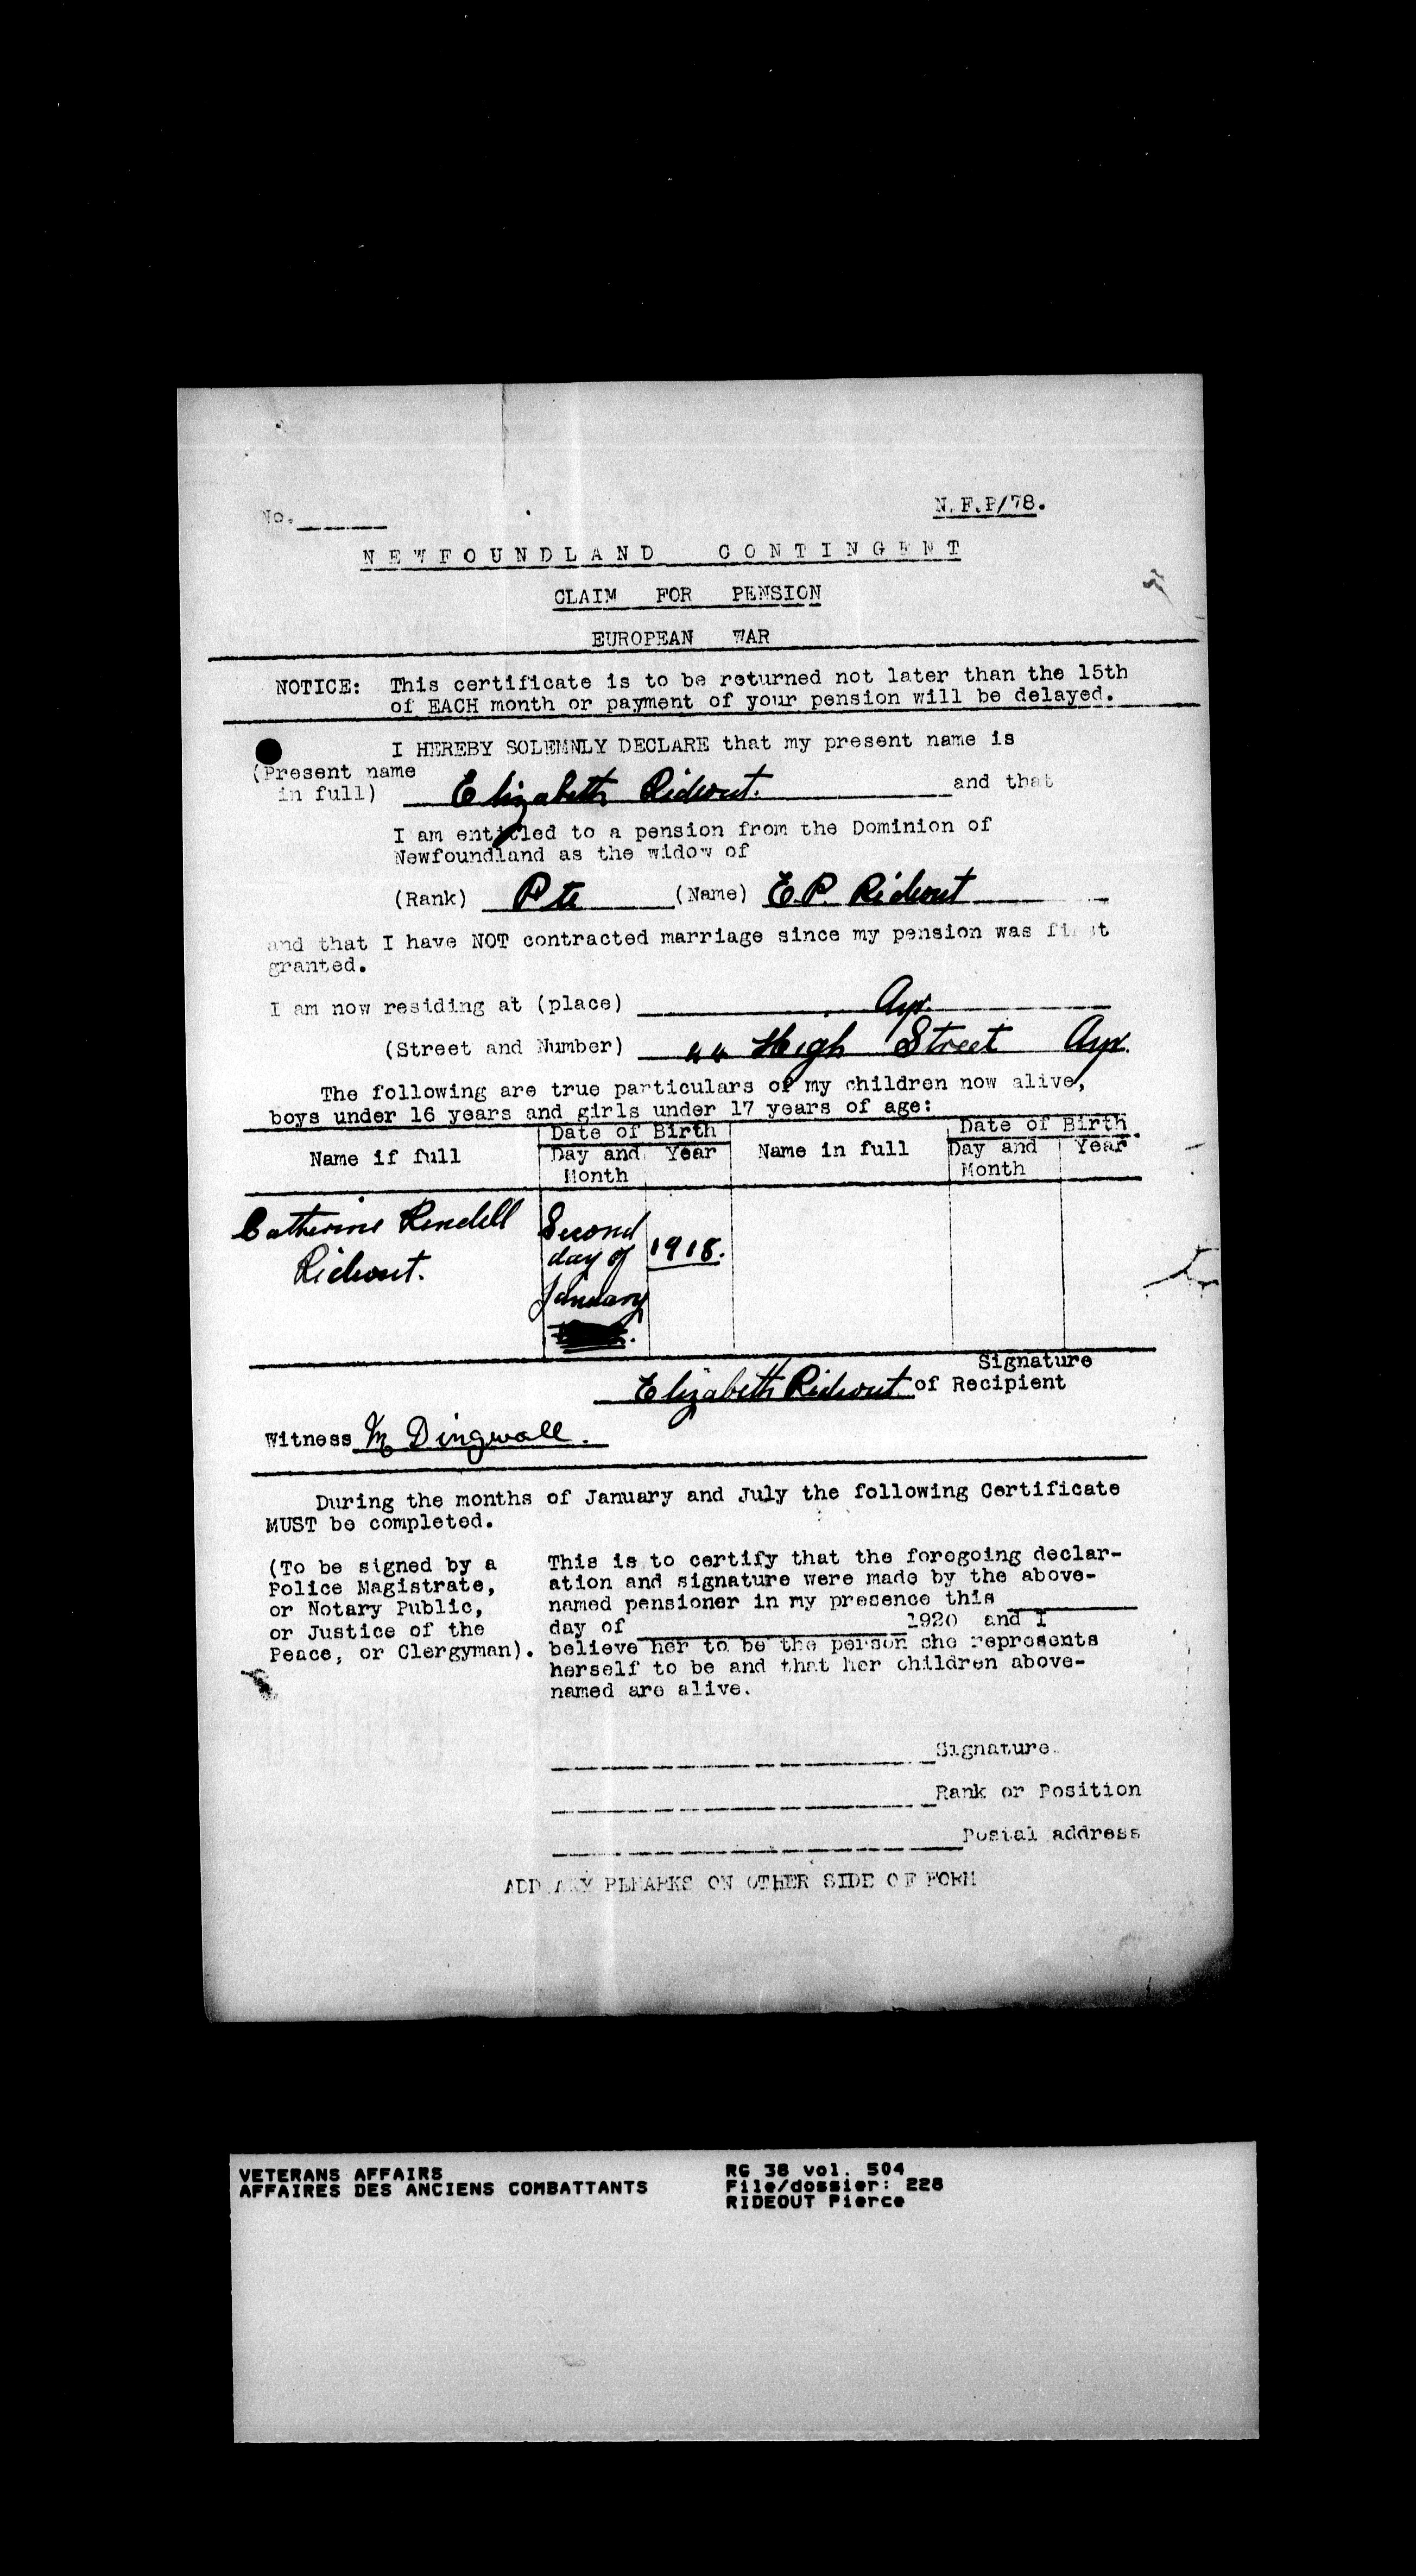 No.
N.F.P/78.
NEWFOUNDLAND CONTINGENT
CLAIM FOR PENSION
EUROPEAN WAR
NOTICE: This certificate is to be returned not later than the 15th
of EACH month or payment of your pension will be delayed.
I HEREBY SOLEMNLY DECLARE that my present name is
(Present name
in full) Elizabeth Rideout. and that
I am entitled to a pension from the Dominion of
Newfoundland as the widow of
(Rank) Pte (Name) E P. Rideout
and that I have NOT contracted marriage since my pension was first
granted.
I am now residing at (place) Ayr.
(Street and Number) 44 High Street Ayr.
The following are true particulars of my children now alive,
boys under 16 years and girls under 17 years of age:
Name if full Date of Birth Day and Month Year Name in full Date of Birth Day and Month Year
Catherine Rendell
Rideout.
Second
day of
January
1918.
Signature
Elizabeth Rideout of Recipient
Witness M Dingwall.
During the months of January and July the following Certificate
MUST be completed.
(To be signed by a
Police Magistrate,
or Notary Public,
or Justice of the
Peace, or Clergyman).
This is to certify that the foregoing declar-
ation and signature were made by the above-
named pensioner in my presence this
day of 1920 and I
believe her to be the person she represents
herself to be and that her children above-
named are alive.
Signature.
Rank or Position
Postal address
ADD ANY REMARKS ON OTHER SIDE OF FORM
VETERANS AFFAIRS
AFFAIRES DES ANCIENS COMBATTANTS
RG 38 vol. 504
File/dossier: 228
RIDEOUT Pierce